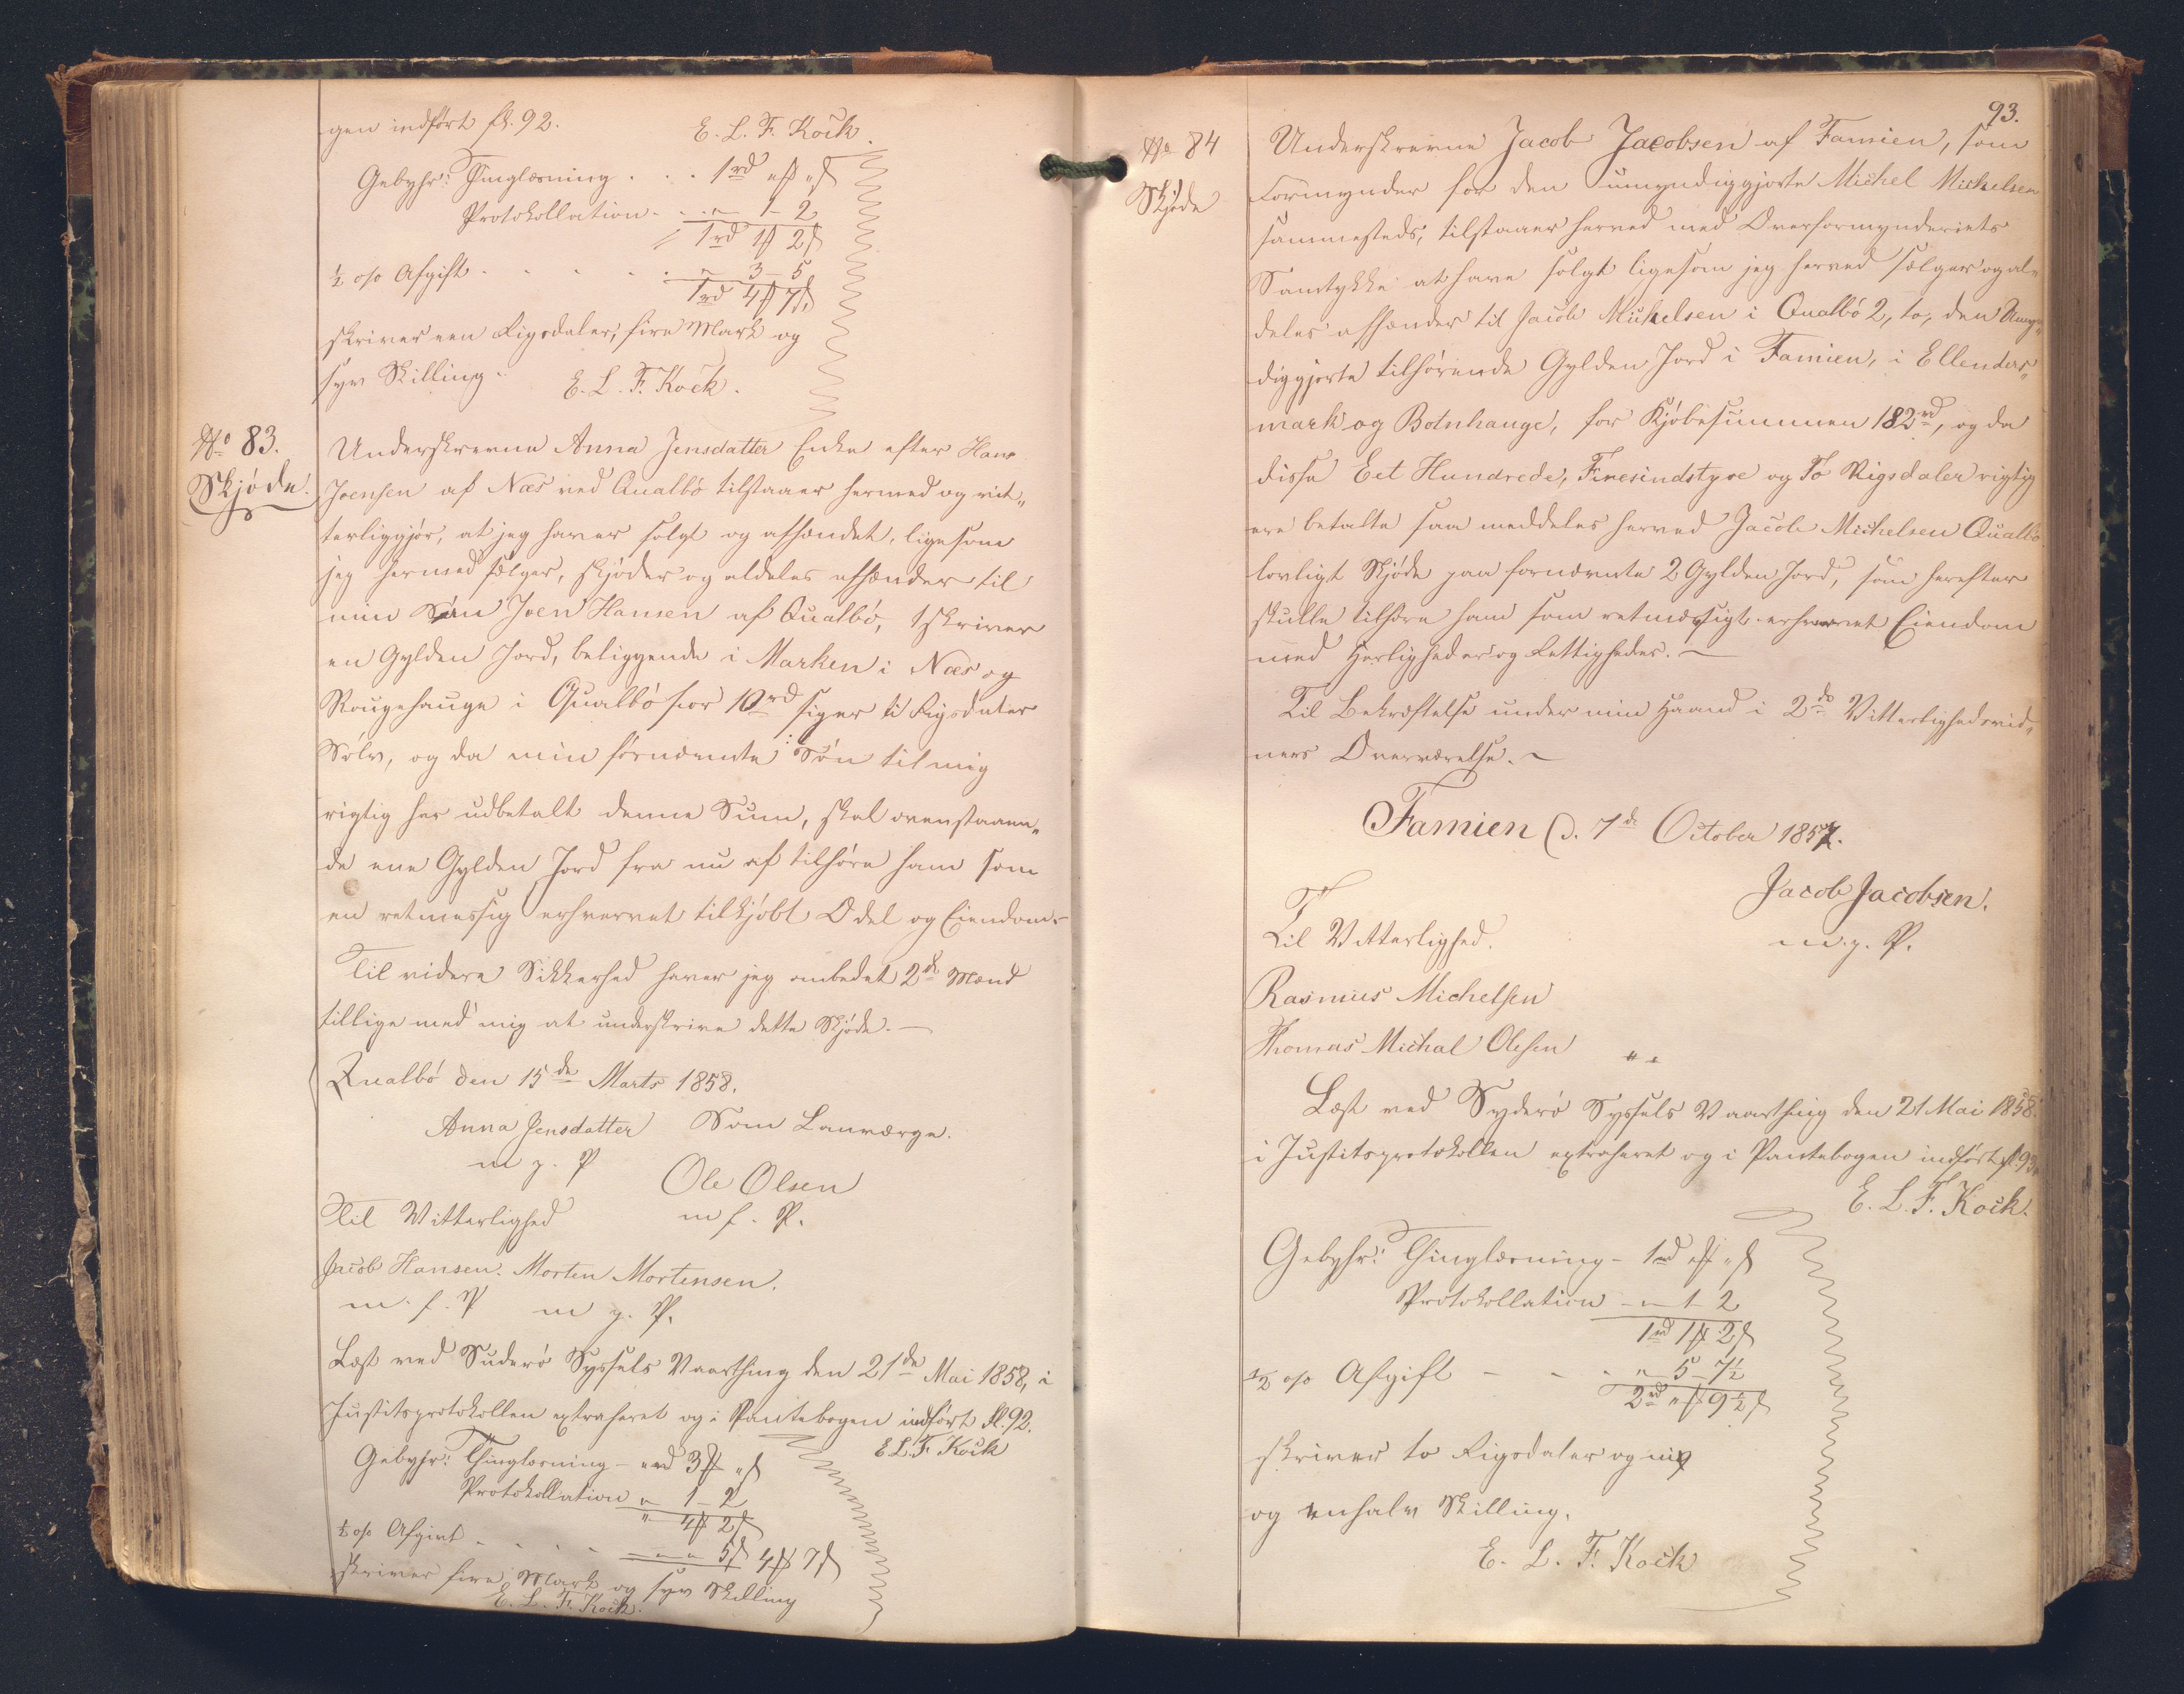 gen indført fl. 92.
E. L. F. Kock.
Gebyhr: Thinglæsning . . . 1rd „ß „ß
Protokollation - . „ 1 - 2
1rd 1ß 2ß
½ o/o Afgift . . . . . „ 3 - 5
1rd 4ß 7ß
skriver een Rigsdaler, fire Mark og
syv Skilling.
E. L. F. Kock.
No 83.
Skjøde.
Underskrevne Anna Jensdatter Enke efter Hans
Joensen af Næs ved Qualbø tilstaaer hermed og vit„
terliggjør, at jeg haver solgt og afhændet, ligesom
jeg hermed sælger, skjøder og aldeles afhænder til
min Søn Joen Hansen af Qualbø, 1 skriver
en Gylden Jord, beliggende i Marken i Næs og
Rougehauge i Qualbø for 10rd siger ti Rigsdaler
Sølv, og da min førnævnte Søn til mig
rigtig har udbetalt denne Sum, skal ovenstaaen„
de ene Gylden Jord fra nu af tilhøre ham som
en retmæssig erhvervet tilkjøbt Odel og Eiendom.
Til videre Sikkerhed haver jeg ombedet 2de Mænd
tillige med mig at underskrive dette Skjøde. —
Qualbø den 15de Marts 1858.
Anna Jensdatter Som Lauværge.
m. p. P
Ole Olsen
Til Vitterlighed
m f. P.
Jacob Hansen. Morten Mortensen.
m. f. P m p. P.
Læst ved Suderø Syssels Vaarthing den 21de Mai 1858, i
Justitsprotokollen extraheret og i Pantebogen indført fl. 92.
E L. F. Kock
Gebyhr: Thinglæsning - „rd 3ß „ß
Protokollation „ 1 - 2
„ 4ß 2ß
½ o/o Afgivt . . . . . - „ „ 5ß 4ß 7ß
skriver fire Mark og syv Skilling
E. L. F. Kock.
93.
No 84
Skjøde
Underskrevne Jacob Jacobsen af Famien, som
Formynder for den umyndiggjorte Michel Michelsen
sammesteds, tilstaaer herved med Overformynderiets
Samtykke at have solgt ligesom jeg herved sælger og al„
deles afhænder til Jacob Michelsen i Qualbø 2, to, den Umyn„
diggjorte tilhørende Gylden Jord i Famien, i Ellenders„
mark og Botnhauge, for Kjøbesummen 182rd, og da
disse Eet Hundrede, Firesindstyve og To Rigsdaler rigtig
ere betalte saa meddeles herved Jacob Michelsen Qualbø
lovligt Skjøde paa fornævnte 2 Gylden Jord, som herefter
skulle tilhøre ham som retmæssigt erhvervet Eiendom
med Herligheder og Rettigheder. —
Til Bekræftelse under min Haand i 2de Vitterlighedsvid„
ners Overværelse. —
Famien d. 7de October 1857.
Jacob Jacobsen.
Til Vitterlighed.
m. p. P.
Rasmus Michelsen
Thomas Michal Olesen „ „
Læst ved Syderø Syssels Vaarthing den 21 Mai 1858.
i Justitsprotokollen extraheret og i Pantebogen indført fl 93.
E. L. F. Kock.
Gebyhr: Thinglæsning - 1rd „ß „ß
Protokollation - „ 1 - 2
1rd 1ß 2ß
½ o/o Afgift - - - „ 5 - 7½
2rd „ß 9½ß
skriver to Rigsdaler og ni
og enhalv Skilling.
E. L. F. Kock